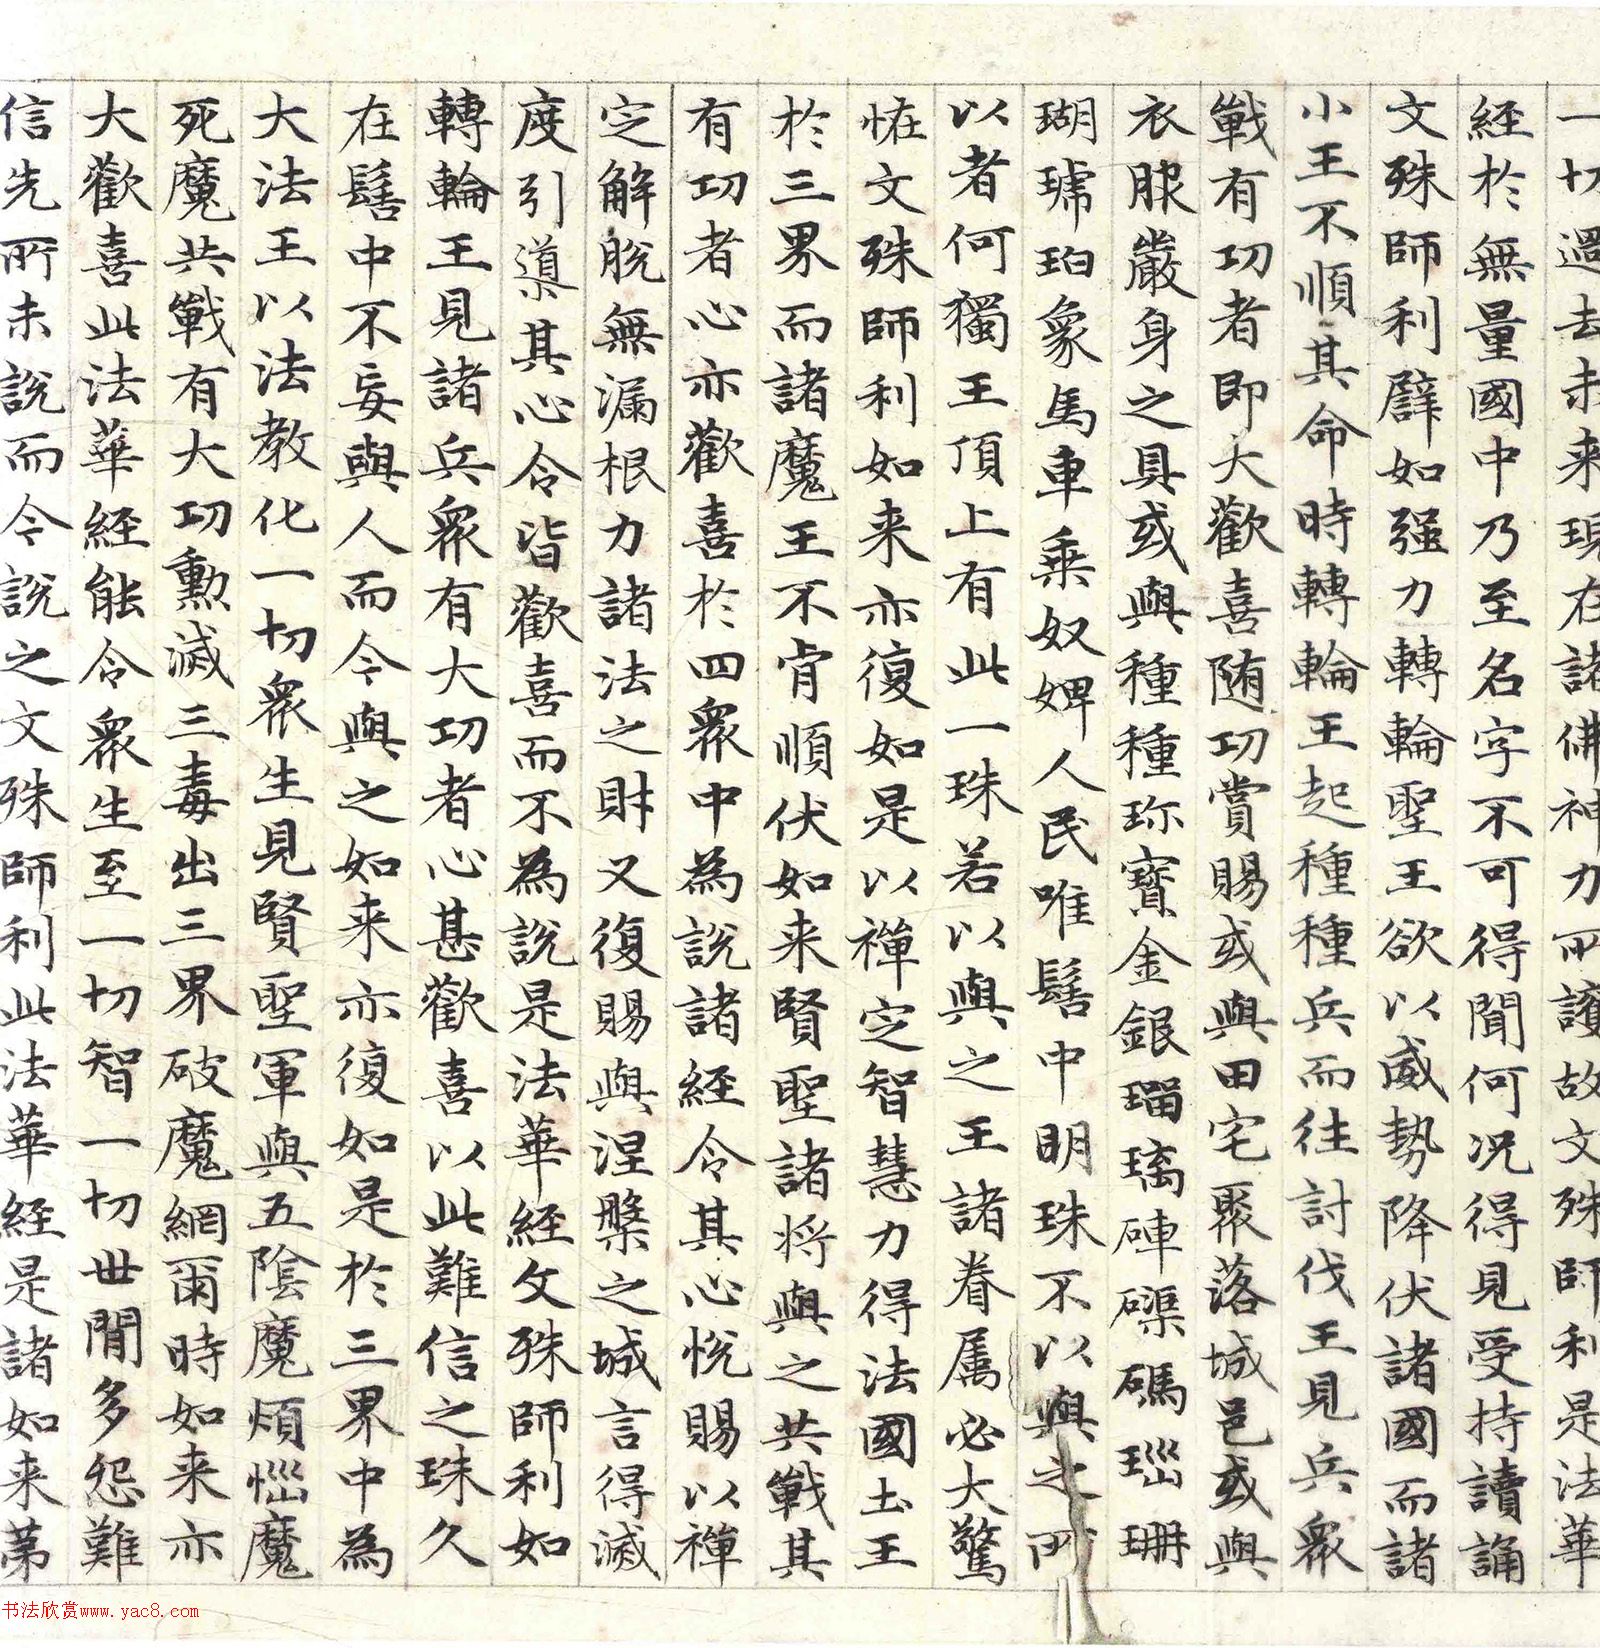 一切過去未来現在諸佛神力所護故文殊師利是法華
經於無量國中乃至名字不可得聞何况得見受持讀誦
文殊師利譬如强力轉輪聖王欲以威勢降伏諸國而諸
小王不順其命時轉輪王起種種兵而往討伐王見兵衆
戰有功者即大歡喜随功賞賜或與田宅聚落城邑或與
衣服嚴身之具或與種種珎寳金銀瑠璃硨磲碼瑙珊
瑚琥珀象馬車乗奴婢人民唯髻中明珠不以與之所
以者何獨王頂上有此一珠若以與之王諸眷属必大驚
恠文殊師利如来亦復如是以禪定智慧力得法國土王
於三界而諸魔王不肯順伏如来賢聖諸将與之共戰其
有功者心亦歡喜於四衆中為說諸經令其心悅賜以禪
定解脫無漏根力諸法之財又復賜與涅槃之城言得滅
度引導其心令皆歡喜而不為說是法華經文殊師利如
轉輪王見諸兵衆有大功者心甚歡喜以此難信之珠久
在髻中不妄與人而今與之如来亦復如是於三界中為
大法王以法教化一切衆生見賢聖軍與五陰魔煩惱魔
死魔共戰有大功勳滅三毒出三界破魔網爾時如来亦
大歡喜此法華經能令衆生至一切智一切世間多怨難
信先所未說而今說之文殊師利此法華經是諸如来第
书法欣赏www.yac8.com